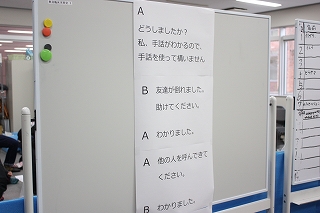 A
どうしましたか？
私、手話がわかるので、
手話を使って構いません
B 友達が倒れました。
助けてください。
A わかりました。
A 他の人を呼んできて
ください。
B わかりました。